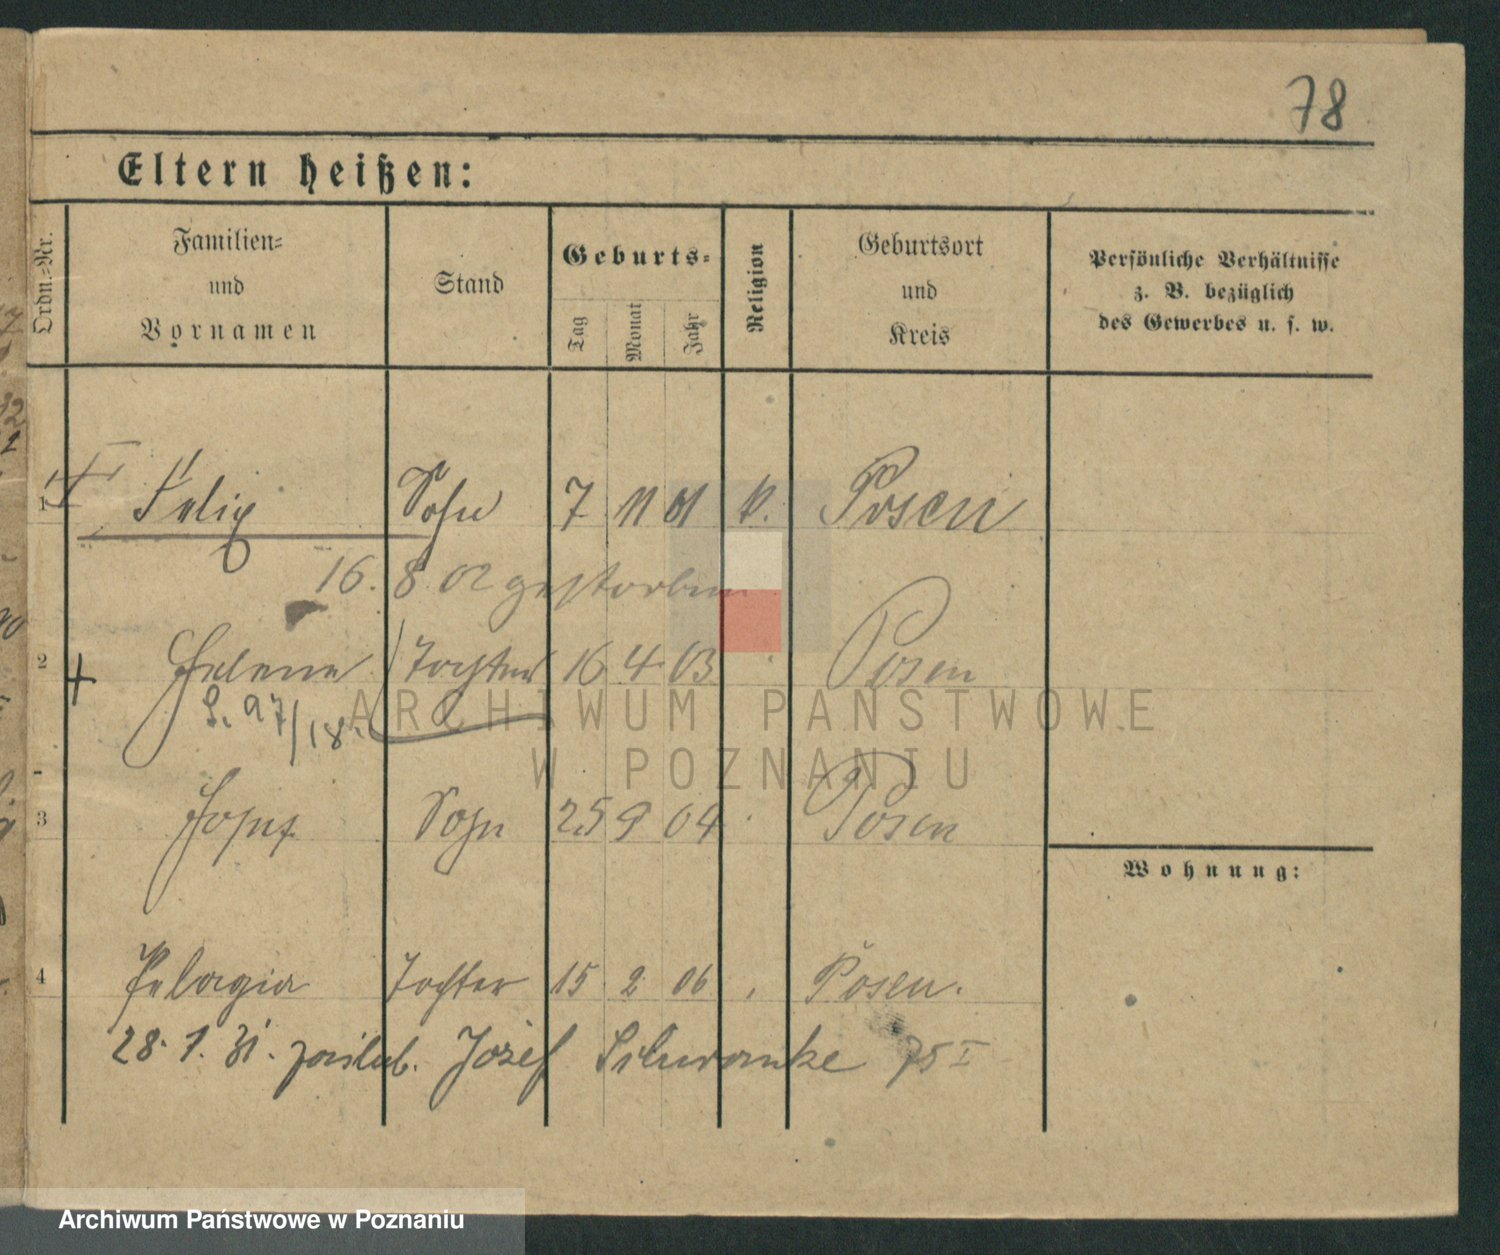 78
Eltern heißen:
Ordn.-Nr.
Familien-
und
Vornamen
Stand
Geburts-
Tag
Monat
Jahr
Religion
Geburtsort
und
Kreis
Persönliche Verhältnisse
z. B. bezüglich
des Gewerbes u. s. w.
1 Felix Sohn 7 11 01 k. Posen
16. 8 02 gestorben
2 Helene Tochter 16 4 03 Posen
S. 97/18.
3 Josef Sohn 25 9 04 Posen
Wohnung:
4 Pelagia Tochter 15 2 06 Posen.
28. 1. 31. zaślub. Józef 75 I
ARCHIWUM PAŃSTWOWE
W POZNANIU
Archiwum Państwowe w Poznaniu